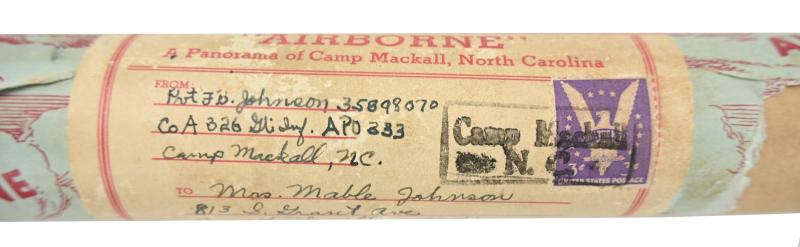 "AIRBORNE"
A Panorama of Camp Mackall, North Carolina
FROM:
Pvt F.D. Johnson 35898070
Co A 326 Gli Inf. APO 333
Camp Mackall, NC.
Camp Mackall
N. C.
3¢
UNITED STATES POSTAGE
TO Mrs. Mable Johnson
813 S. Grant Ave
NE
A